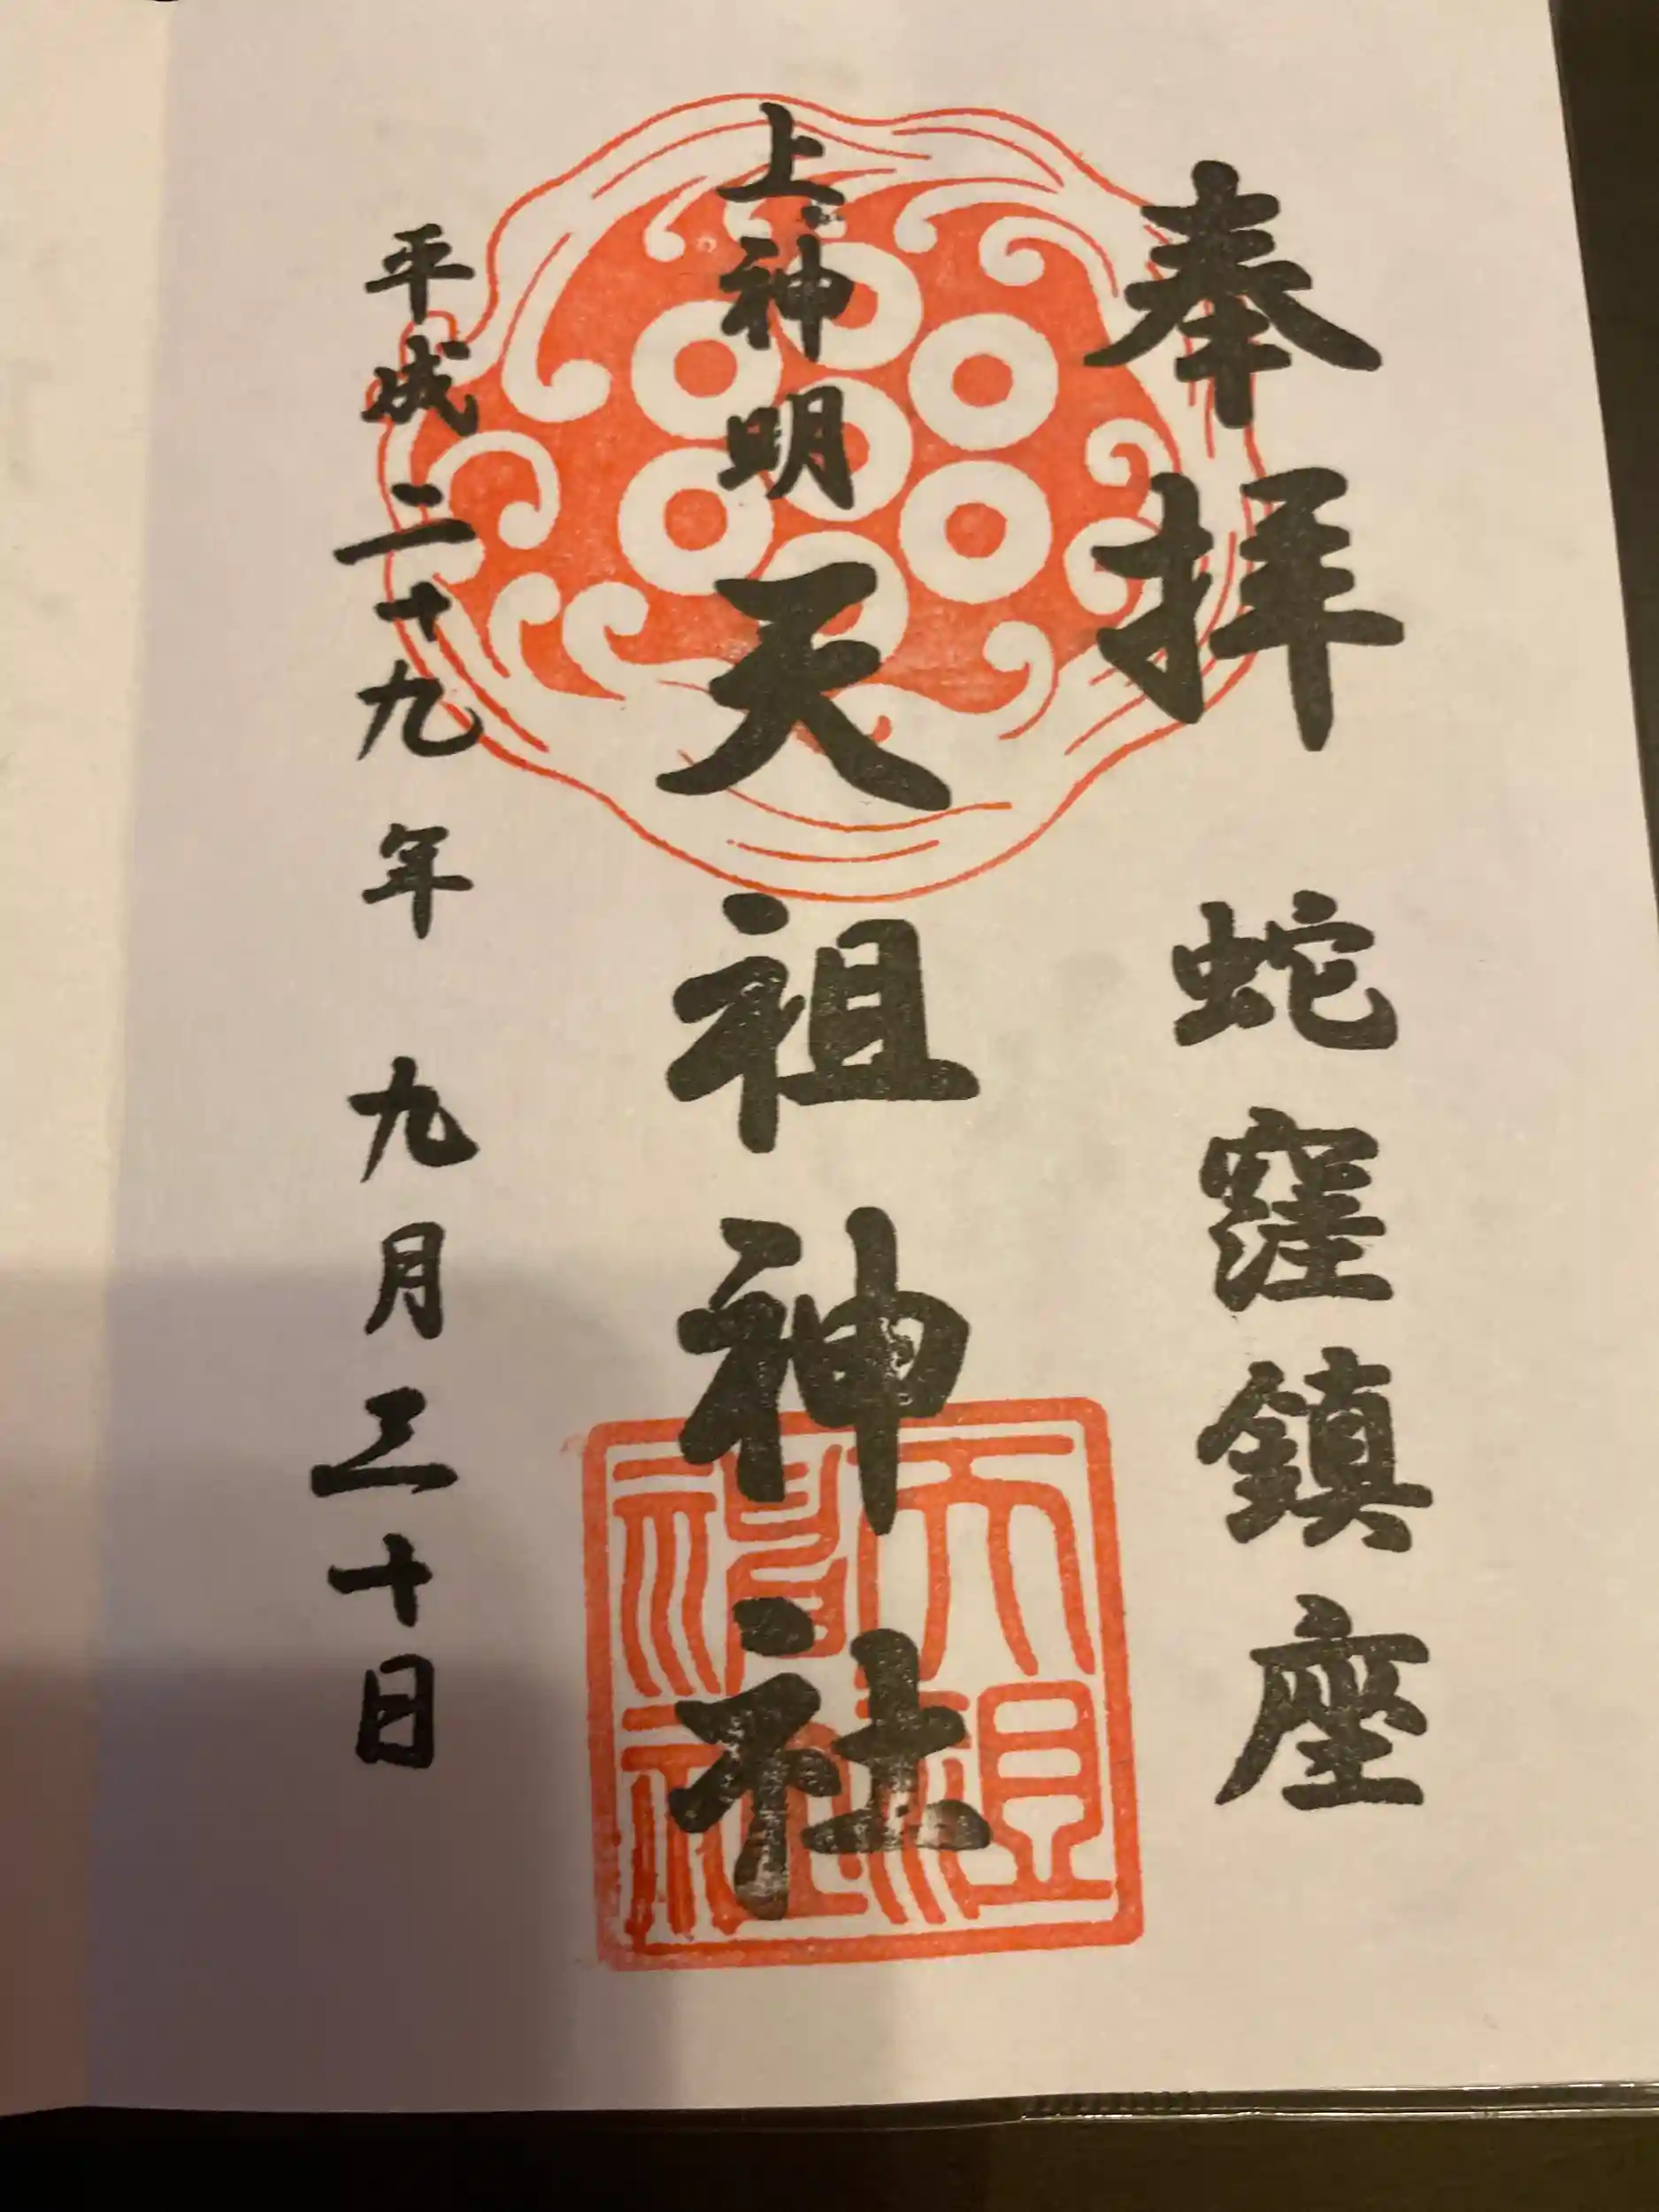 奉拝 蛇窪鎮座
上神明天祖神社
平成二十九年 九月三十日
天祖
神社